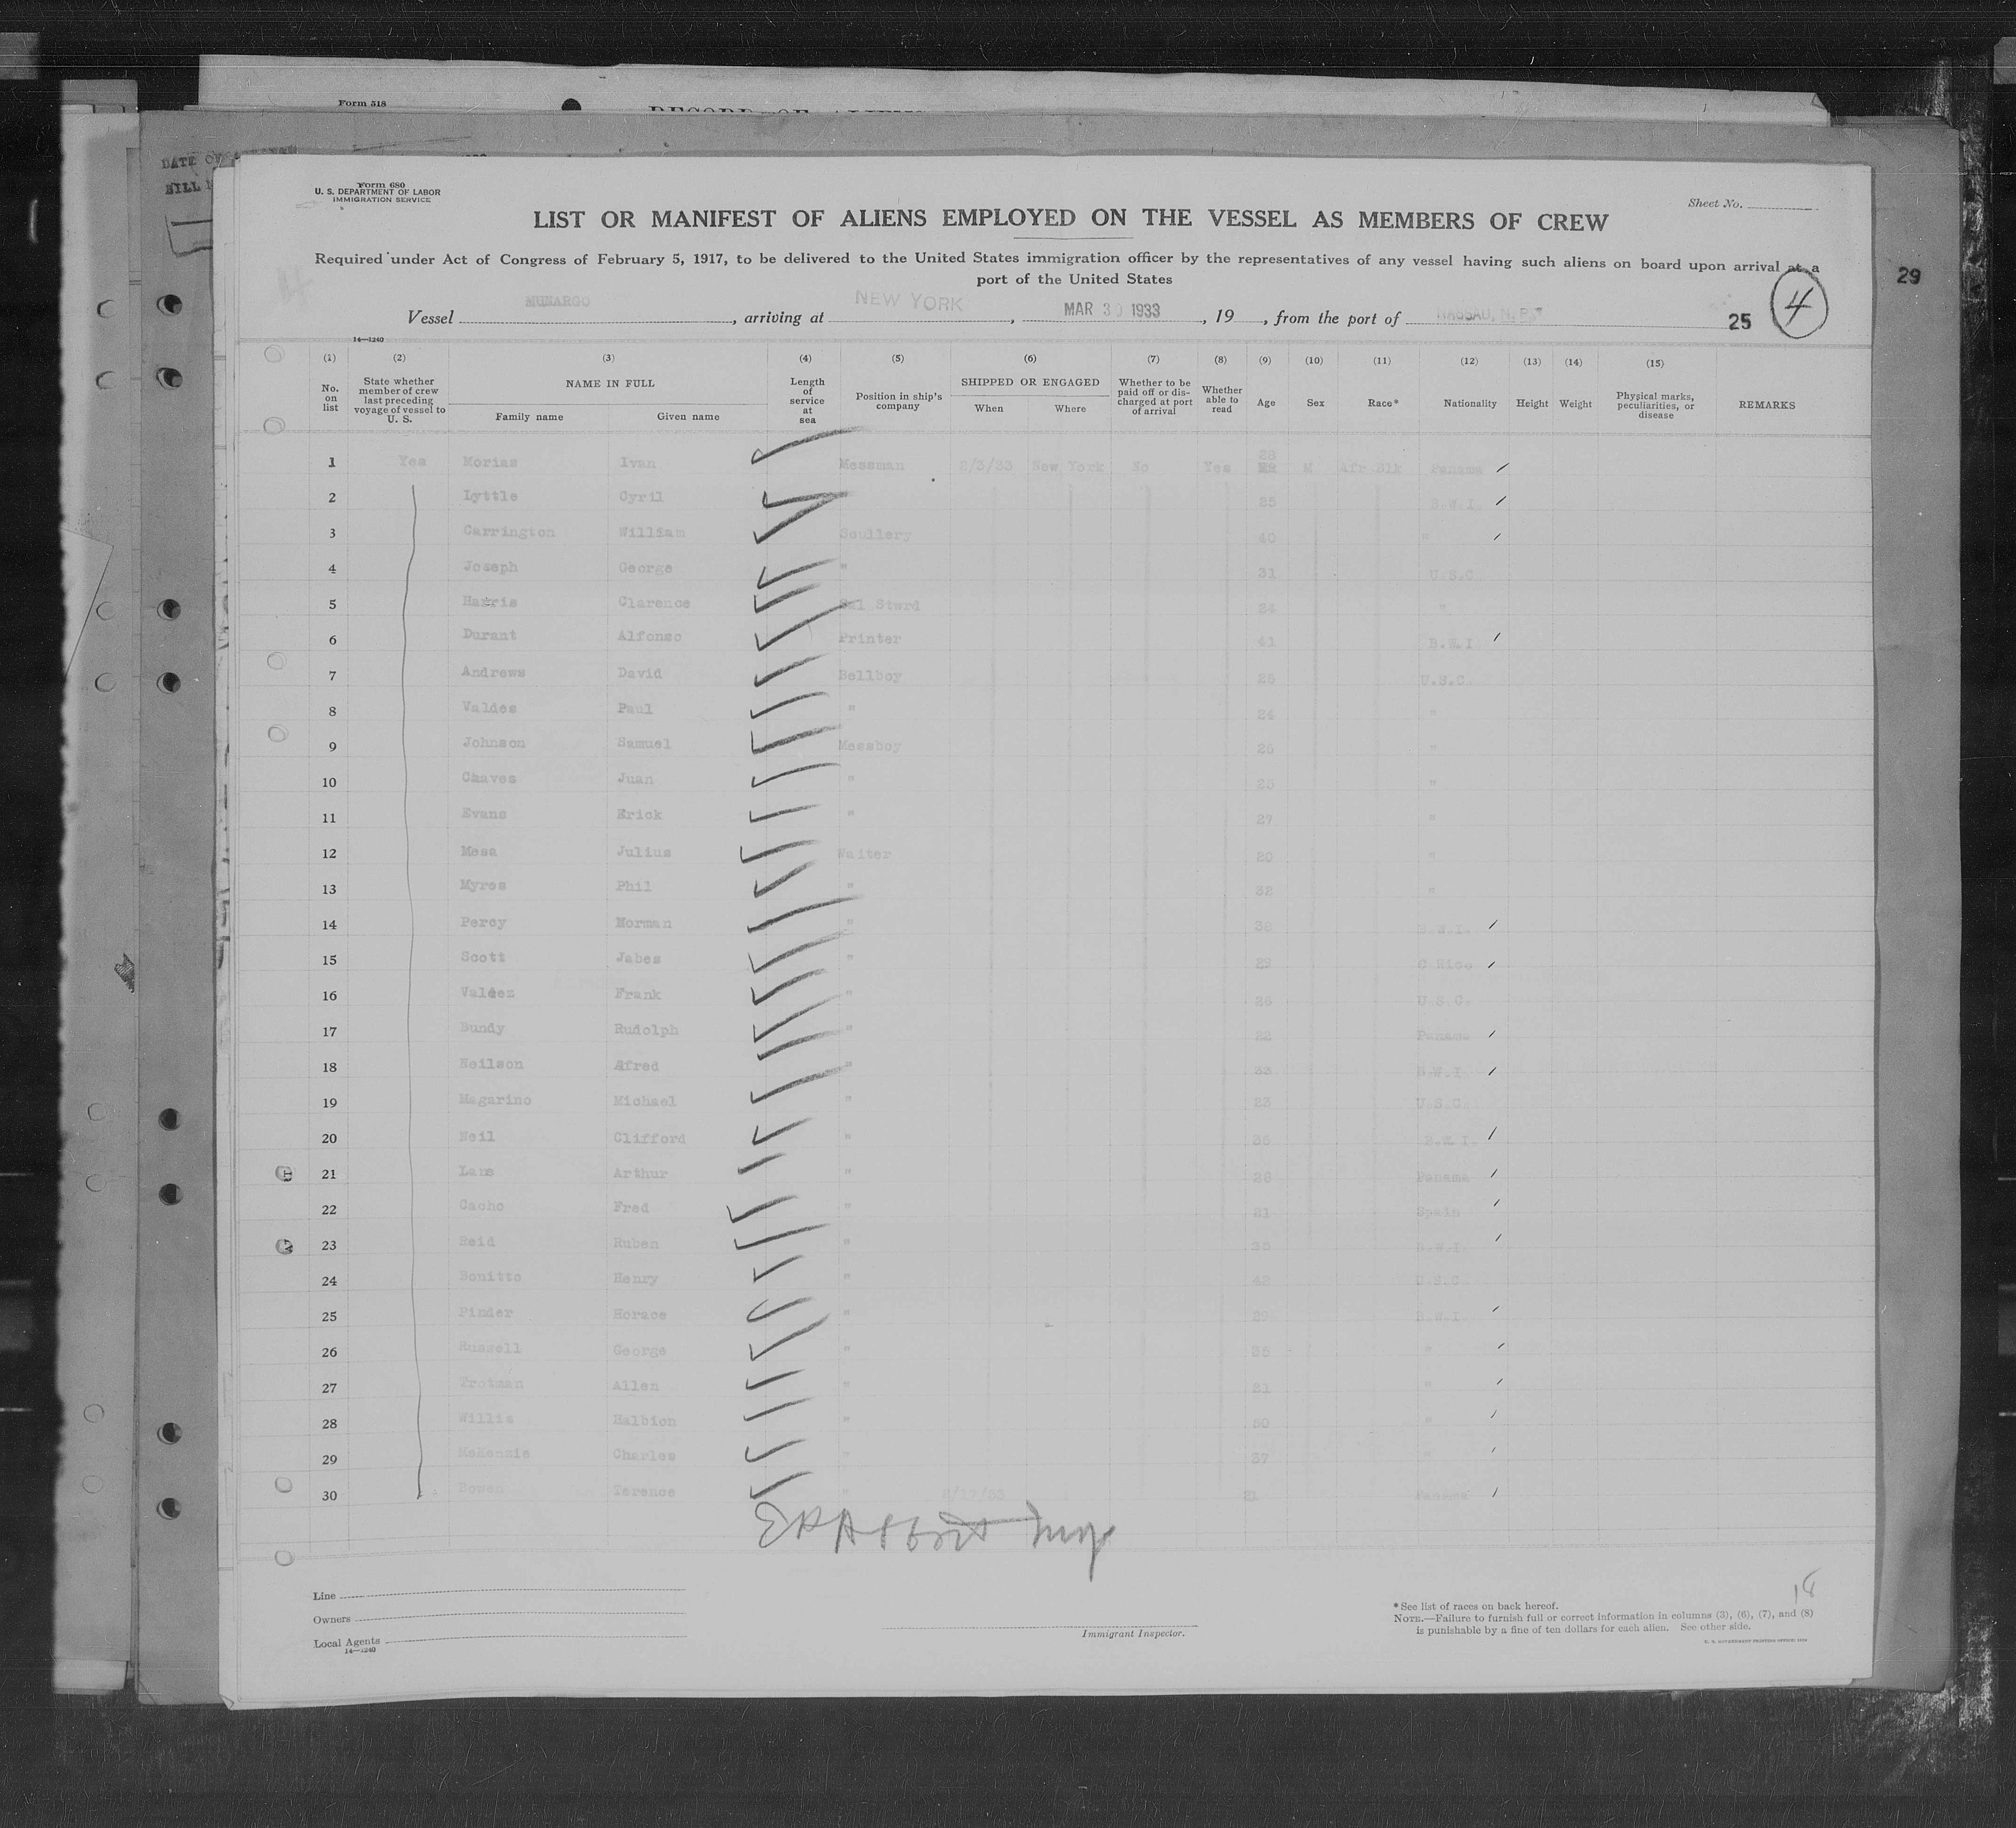 Form 518
DATE OF
Form 680
U. S. DEPARTMENT OF LABOR
IMMIGRATION SERVICE
Sheet No.
LIST OR MANIFEST OF ALIENS EMPLOYED ON THE VESSEL AS MEMBERS OF CREW
Required under Act of Congress of February 5, 1917, to be delivered to the United States immigration officer by the representatives of any vessel having such aliens on board upon arrival at a
port of the United States
29
Vessel MUNARGO, arriving at NEW YORK, MAR 30 1933, 19 , from the port of NASSAU, N. P. 25 4
14—1240
(1) (2) (3) (4) (5) (6) (7) (8) (9) (10) (11) (12) (13) (14) (15)
No. on list State whether member of crew last preceding voyage of vessel to U. S. NAME IN FULL Family name Given name Length of service at sea Position in ship's company SHIPPED OR ENGAGED When Where Whether to be paid off or discharged at port of arrival Whether able to read Age Sex Race* Nationality Height Weight Physical marks, peculiarities, or disease REMARKS
1 Yes Morias Ivan Messman 2/3/33 New York No Yes 28 M Afr Blk Panama
2 Lyttle Cyril 25 B.W.I.
3 Carrington William Scullery 40 "
4 Joseph George " 31 U.S.C
5 Harris Clarence Stwrd 24 "
6 Durant Alfonso Printer 41 B.W.I
7 Andrews David Bellboy 26 U.S.C.
8 Valdes Paul " 24 "
9 Johnson Samuel Messboy 26 "
10 Chaves Juan " 25 "
11 Evans Erick " 27 "
12 Mesa Julius Waiter 20 "
13 Myres Phil " 32 "
14 Percy Norman " 38 B.W.I.
15 Scott Jabes " 29 C Rica
16 Valdez Frank " 26 U.S.C.
17 Bundy Rudolph " 22 Panama
18 Neilson Afred " 33 B.W.I.
19 Magarino Michael " 23 U.S.C.
20 Neil Clifford " 36 B.W.I.
21 Lam Arthur " 28 Panama
22 Cacho Fred " 21 Spain
23 Reid Ruben " 35 B.W.I.
24 Bonitto Henry " 42 U.S.C.
25 Pinder Horace " 29 B.W.I.
26 Russell George " 35 "
27 Trotman Allen " 21 "
28 Willis Halbion " 50 "
29 McKenzie Charles " 37 "
30 Bowen Terence " 21 Panama
Line
Owners
Local Agents
14—1240
Immigrant Inspector.
18
*See list of races on back hereof.
NOTE.—Failure to furnish full or correct information in columns (3), (6), (7), and (8)
is punishable by a fine of ten dollars for each alien. See other side.